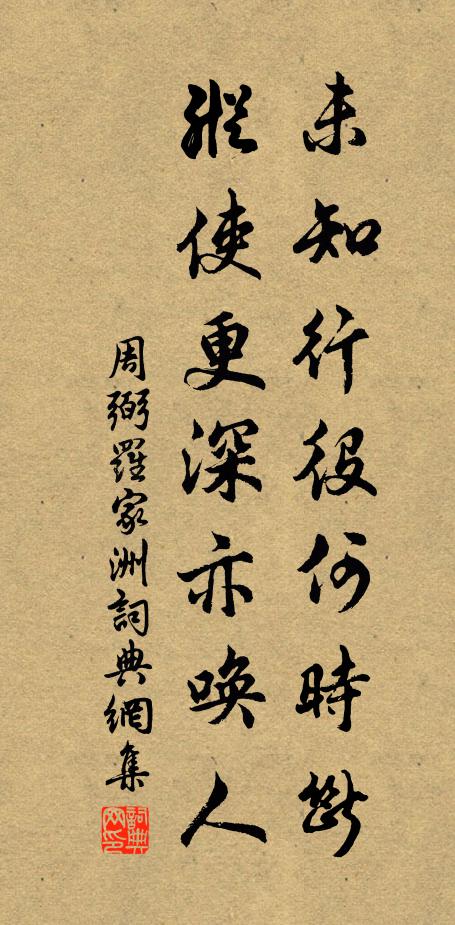 未知行役何時斷
縱使更深亦喚人
周弼羅家洲詞典網集
詞典网印